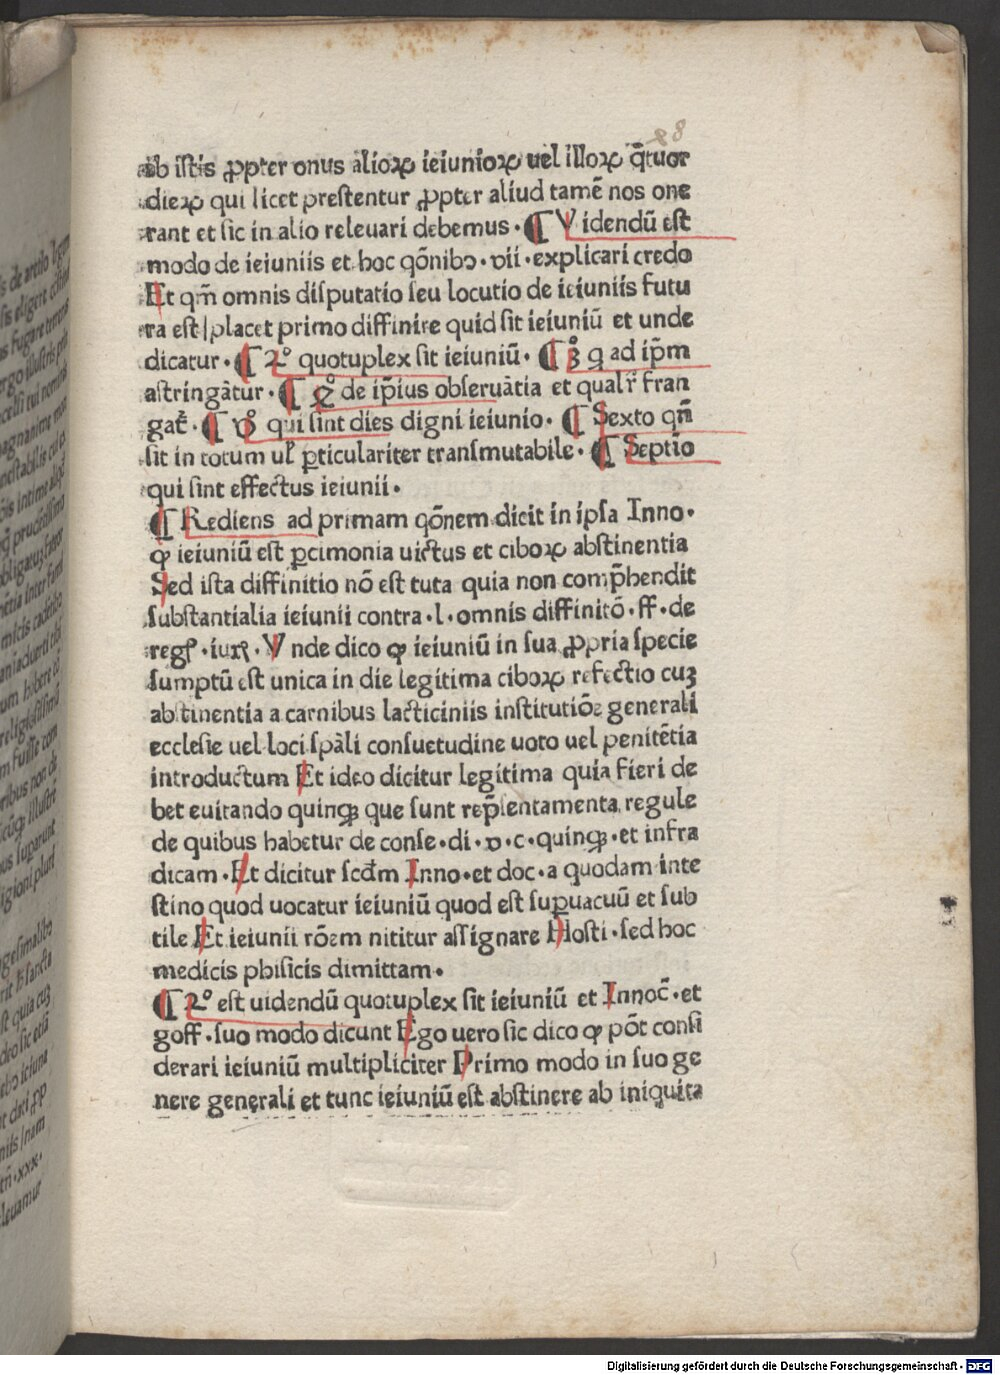 8
ab istis ꝓpter onus alioꝝ ieiunioꝝ uel illoꝝ q̃tuor
dieꝝ qui licet prestentur ꝓpter aliud tamē nos one
rant et sic in alio releuari debemus · ¶ Videndū est
modo de ieiuniis et hoc qōnibꝰ · vii · explicari credo
Et qm̄ omnis disputatio seu locutio de ieiuniis futu
ra est | placet primo diffinire quid sit ieiuniū et unde
dicatur · ¶ 2° quotuplex sit ieiuniū · ¶ 3° q ad ip̄m
astringātur · ¶ 4° de ip̄ius obseruātia et qualr̄ fran
gat̄ · ¶ v° qui sint dies digni ieiunio · ¶ Sexto qn̄
sit in totum ul̓ ꝑticulariter transmutabile · ¶ Septīo
qui sint effectus ieiunii ·
¶ Rediens ad primam qōnem dicit in ipsa Inno ·
ꝙ ieiuniū est ꝑcimonia uictus et ciboꝝ abstinentia
Sed ista diffinitio nō est tuta quia non comp̄hendit
substantialia ieiunii contra · l · omnis diffinitō · ff · de
regl̓ · iur̄ · Vnde dico ꝙ ieiuniū in sua ꝓpria specie
sumptū est unica in die legitima ciboꝝ refectio cuꝫ
abstinentia a carnibus lacticiniis institutiōe generali
ecclesie uel loci sp̄ali consuetudine uoto uel penitētia
introductum Et ideo dicitur legitima quia fieri de
bet euitando quinqꝫ que sunt rep̄sentamenta regule
de quibus habetur de conse · di · v · c · quinqꝫ · et infra
dicam · Et dicitur scd̄m Inno · et doc · a quodam inte
stino quod uocatur ieiuniū quod est suꝑuacuū et sub
tile Et ieiunii rōem nititur assignare Hosti · sed hoc
medicis phisicis dimittam ·
¶ 2° est uidendū quotuplex sit ieiuniū et Innoc̄ · et
goff · suo modo dicunt Ego uero sic dico ꝙ pōt consi
derari ieiuniū multipliciter Primo modo in suo ge
nere generali et tunc ieiuniū est abstinere ab iniquita
Digitalisierung gefördert durch die Deutsche Forschungsgemeinschaft - DFG